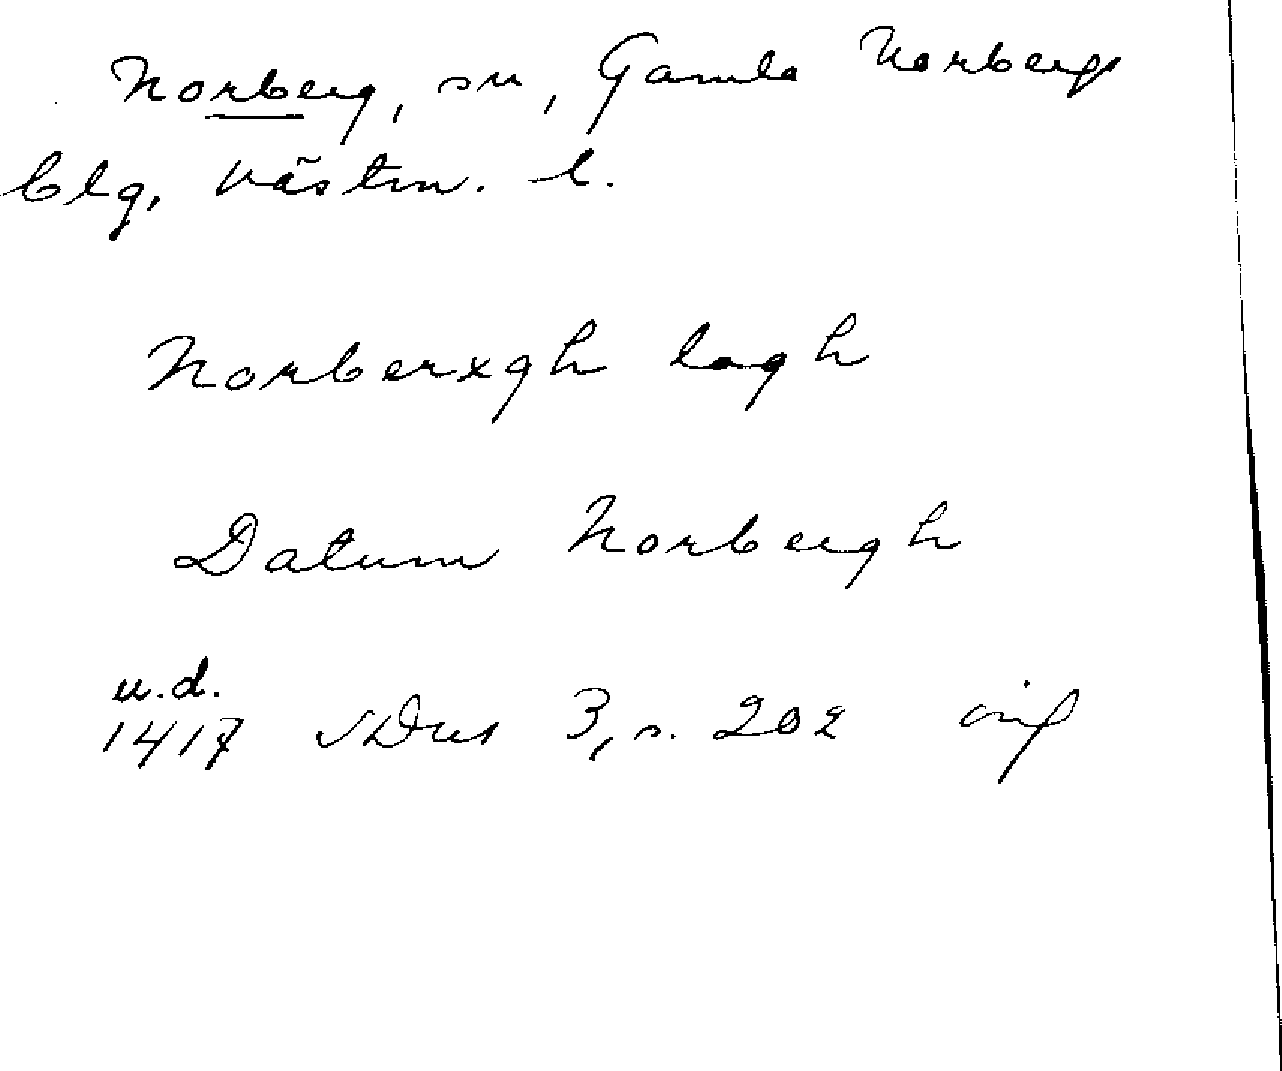 Norberg, sn, Gamla Norbergs
blg, Västm. l.
Norberxgh lagh
Datum Norbergh
u.d.
1417 SDns 3, s. 202 orig